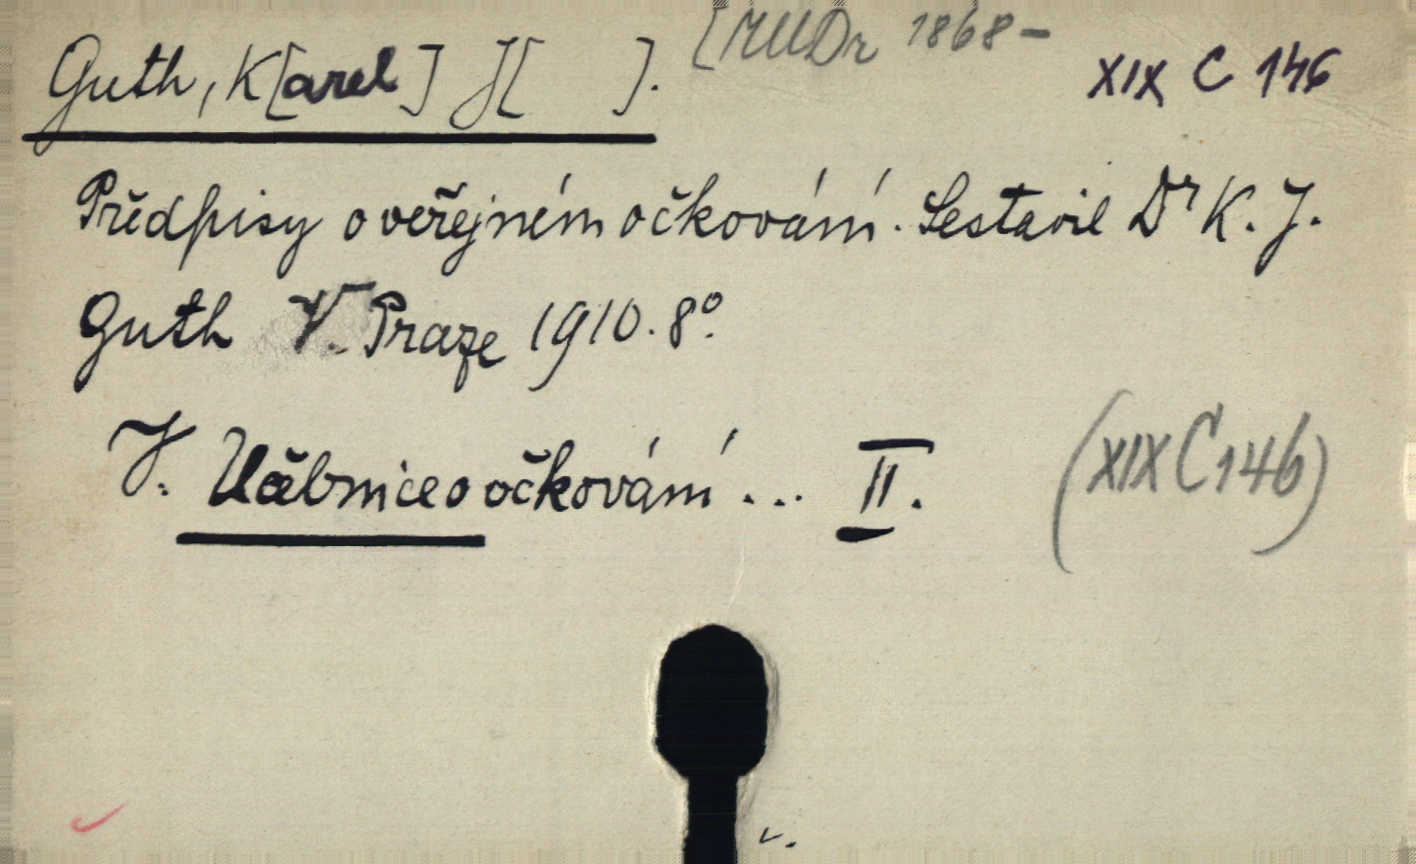 Guth, K[arel] J[ ]. [MUDr 1868- XIX C 146
Předpisy o veřejném očkování. Sestavil Dr K. J.
Guth V Praze 1910. 8°.
V. Učebnice o očkování ... II. (XIX C 146)
v.